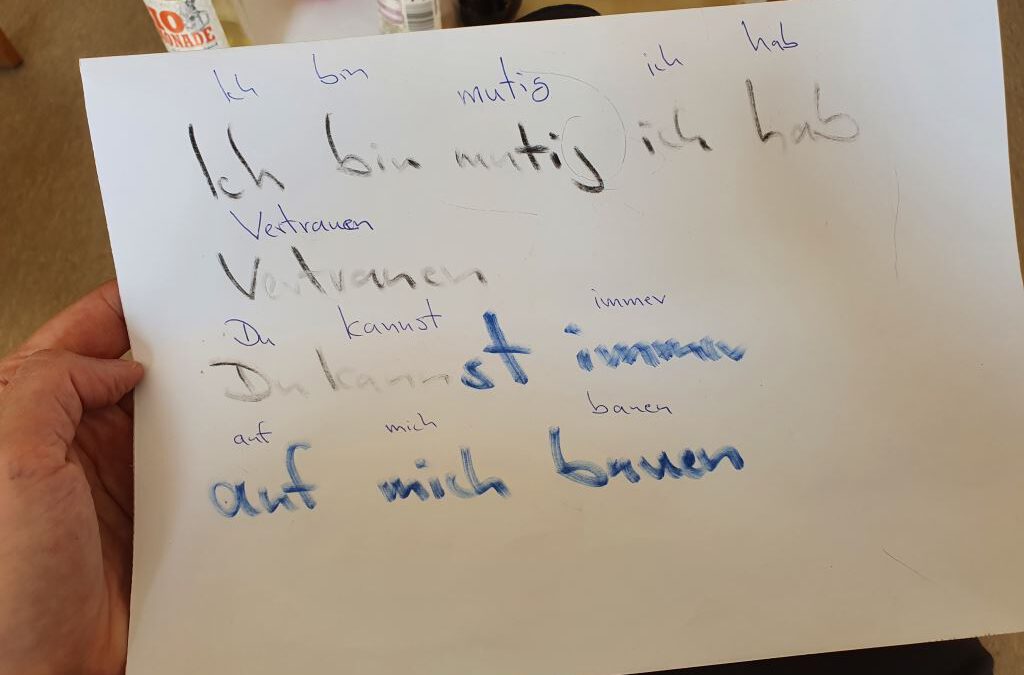 IO
ONADE
Ich bin mutig ich hab
Ich bin mutig ich hab
Vertrauen
Vertrauen
Du kannst immer
Du kannst immer
auf mich bauen
auf mich bauen